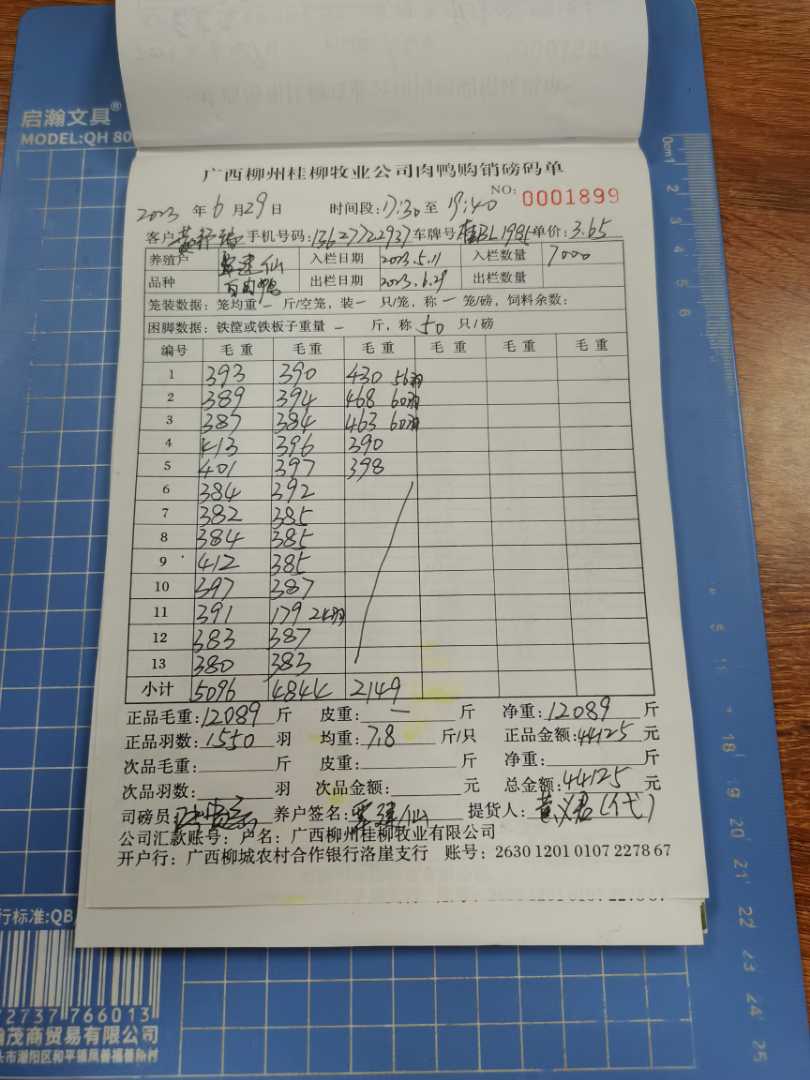 启瀚文具®
MODEL:QH 80
广西柳州桂柳牧业公司肉鸭购销磅码单
NO: 0001899
2023 年 6 月 29 日 时间段: 17:30 至 19:40
客户 手机号码: 13627722937 车牌号 桂BL1985 单价: 3.65
养殖户 覃建仙 入栏日期 2023.5.11 入栏数量 7000
品种 白肉鸭 出栏日期 2023.6.29 出栏数量
笼装数据: 笼均重 - 斤/空笼, 装 - 只/笼, 称 - 笼/磅, 饲料余数:
困脚数据: 铁筐或铁板子重量 - 斤, 称 50 只/磅
编号 毛重 毛重 毛重 毛重 毛重 毛重
1 393 390 430 56羽
2 389 394 468 60羽
3 387 384 463 60羽
4 413 396 390
5 401 397 398
6 384 392
7 382 385
8 384 385
9 412 385
10 397 387
11 391 179 24羽
12 383 387
13 380 383
小计 5096 4844 2149
正品毛重: 12089 斤 皮重: - 斤 净重: 12089 斤
正品羽数: 1550 羽 均重: 7.8 斤/只 正品金额: 44125 元
次品毛重: 斤 皮重: 斤 净重: 斤
次品羽数: 羽 次品金额: 元 总金额: 44125 元
司磅员: 养户签名: 覃建仙 提货人: 黄义君(代)
公司汇款账号: 户名: 广西柳州桂柳牧业有限公司
开户行: 广西柳城农村合作银行洛崖支行 账号: 2630 1201 0107 2278 67
行标准:QB
2737 766013
瀚茂商贸易有限公司
头市潮阳区和平镇凤善福善新村
0cm1 2 3 4 5 6
18 19 20 21 22 23 24 25